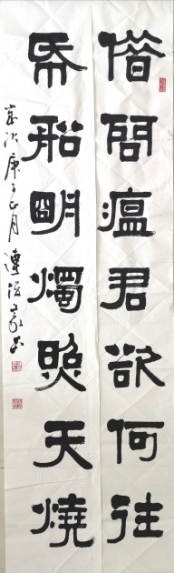 借問瘟君欲何往
帋船明燭照天燒
歲次庚子正月連